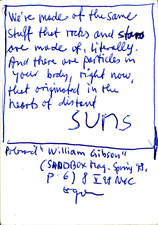 We're made of the same
stuff that rocks and stars
are made of, literally.
And there are particles in
your body, right now,
that originated in the
hearts of distant
suns
"William Gibson"
(SANDBOX mag. Spring '98.
p. 6) 8 X 98 NYC